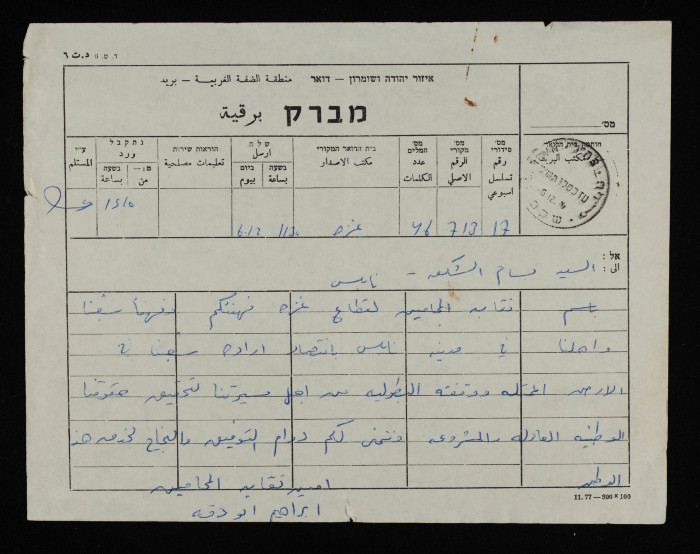 ד.ת 6 د.ت ٦
איזור יהודה ושומרון – דואר منطقة الضفة الغربية – بريد
מברק برقية
מס׳
חותמת בית הדואר
مكتب البريد
מס׳ סידורי رقم تسلسل اسبوعي
מס׳ מקורי الرقم الاصلي
מס׳ המלים عدد الكلمات
בית הדואר המקורי مكتب الاصدار
שלח ارسل
ביום بيوم
בשעה بساعة
הוראות שירות تعليمات مصلحية
נתקבל ورد
בשעה بساعة
מ– من
ע״י المستلم
17 713 46 غزه 1130 6.12 1510
אל :
الى :
السيد بسام الشكعه - نابلس
باسم نقابة المحامين لقطاع غزه نهنئكم ونهنأ شعبنا
واهلنا في مدينه نابلس بانتصار اراده شعبنا في
الارض المحتله ووقفته البطوليه من اجل مسيرتنا لتحقيق حقوقنا
الوطنيه العادله والمشروعه ونتمنى لكم دوام التوفيق والنجاح لخدمه هذا
الوطن
امين نقابه المحامين
ابراهيم ابو دقه
11.77 — 300 × 100